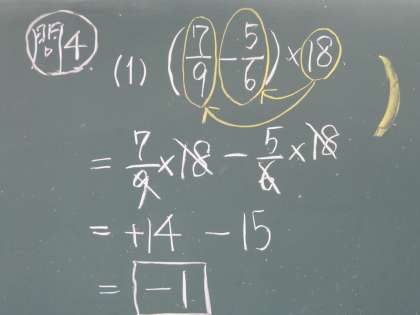 問4
(1) (7/9 - 5/6) × 18
= 7/9 × 18 - 5/6 × 18
= +14 - 15
= -1